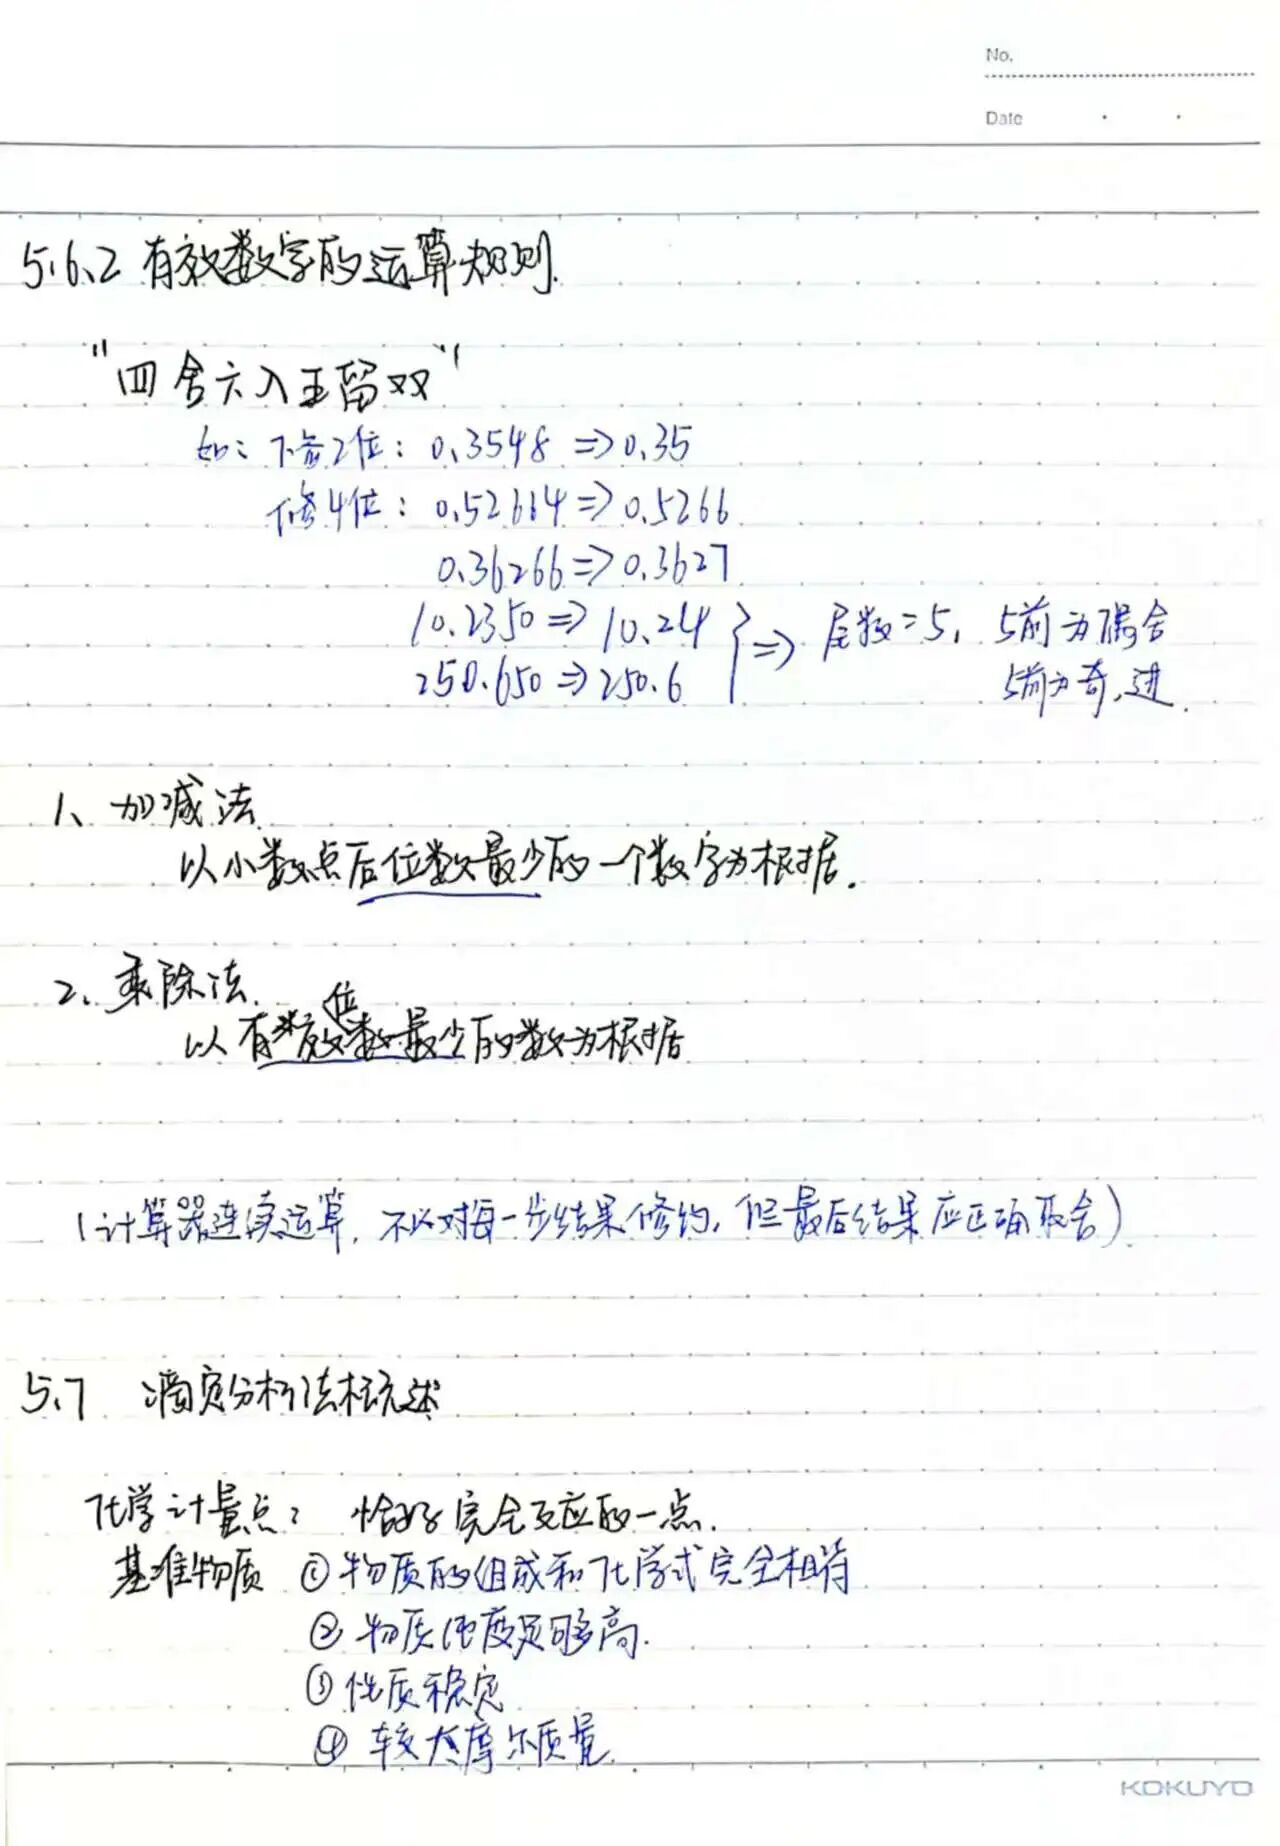 No.
Date
5.6.2 有效数字的运算规则.
"四舍六入五留双"
如: 修2位: 0.3548 => 0.35
修4位: 0.52664 => 0.5266
0.36266 => 0.3627
10.2350 => 10.24
250.650 => 250.6
} => 尾数=5, 5前为偶舍
5前为奇,进.
1、加减法
以小数点后位数最少的一个数字为根据.
2、乘除法.
以有效位数最少的数为根据
(计算器连续运算,不必对每一步结果修约,但最后结果应正确取舍)
5.7 滴定分析法概述
化学计量点: 恰好完全反应的一点.
基准物质 ①物质的组成和化学式完全相符
②物质纯度足够高.
③性质稳定
④较大摩尔质量.
KOKUYO